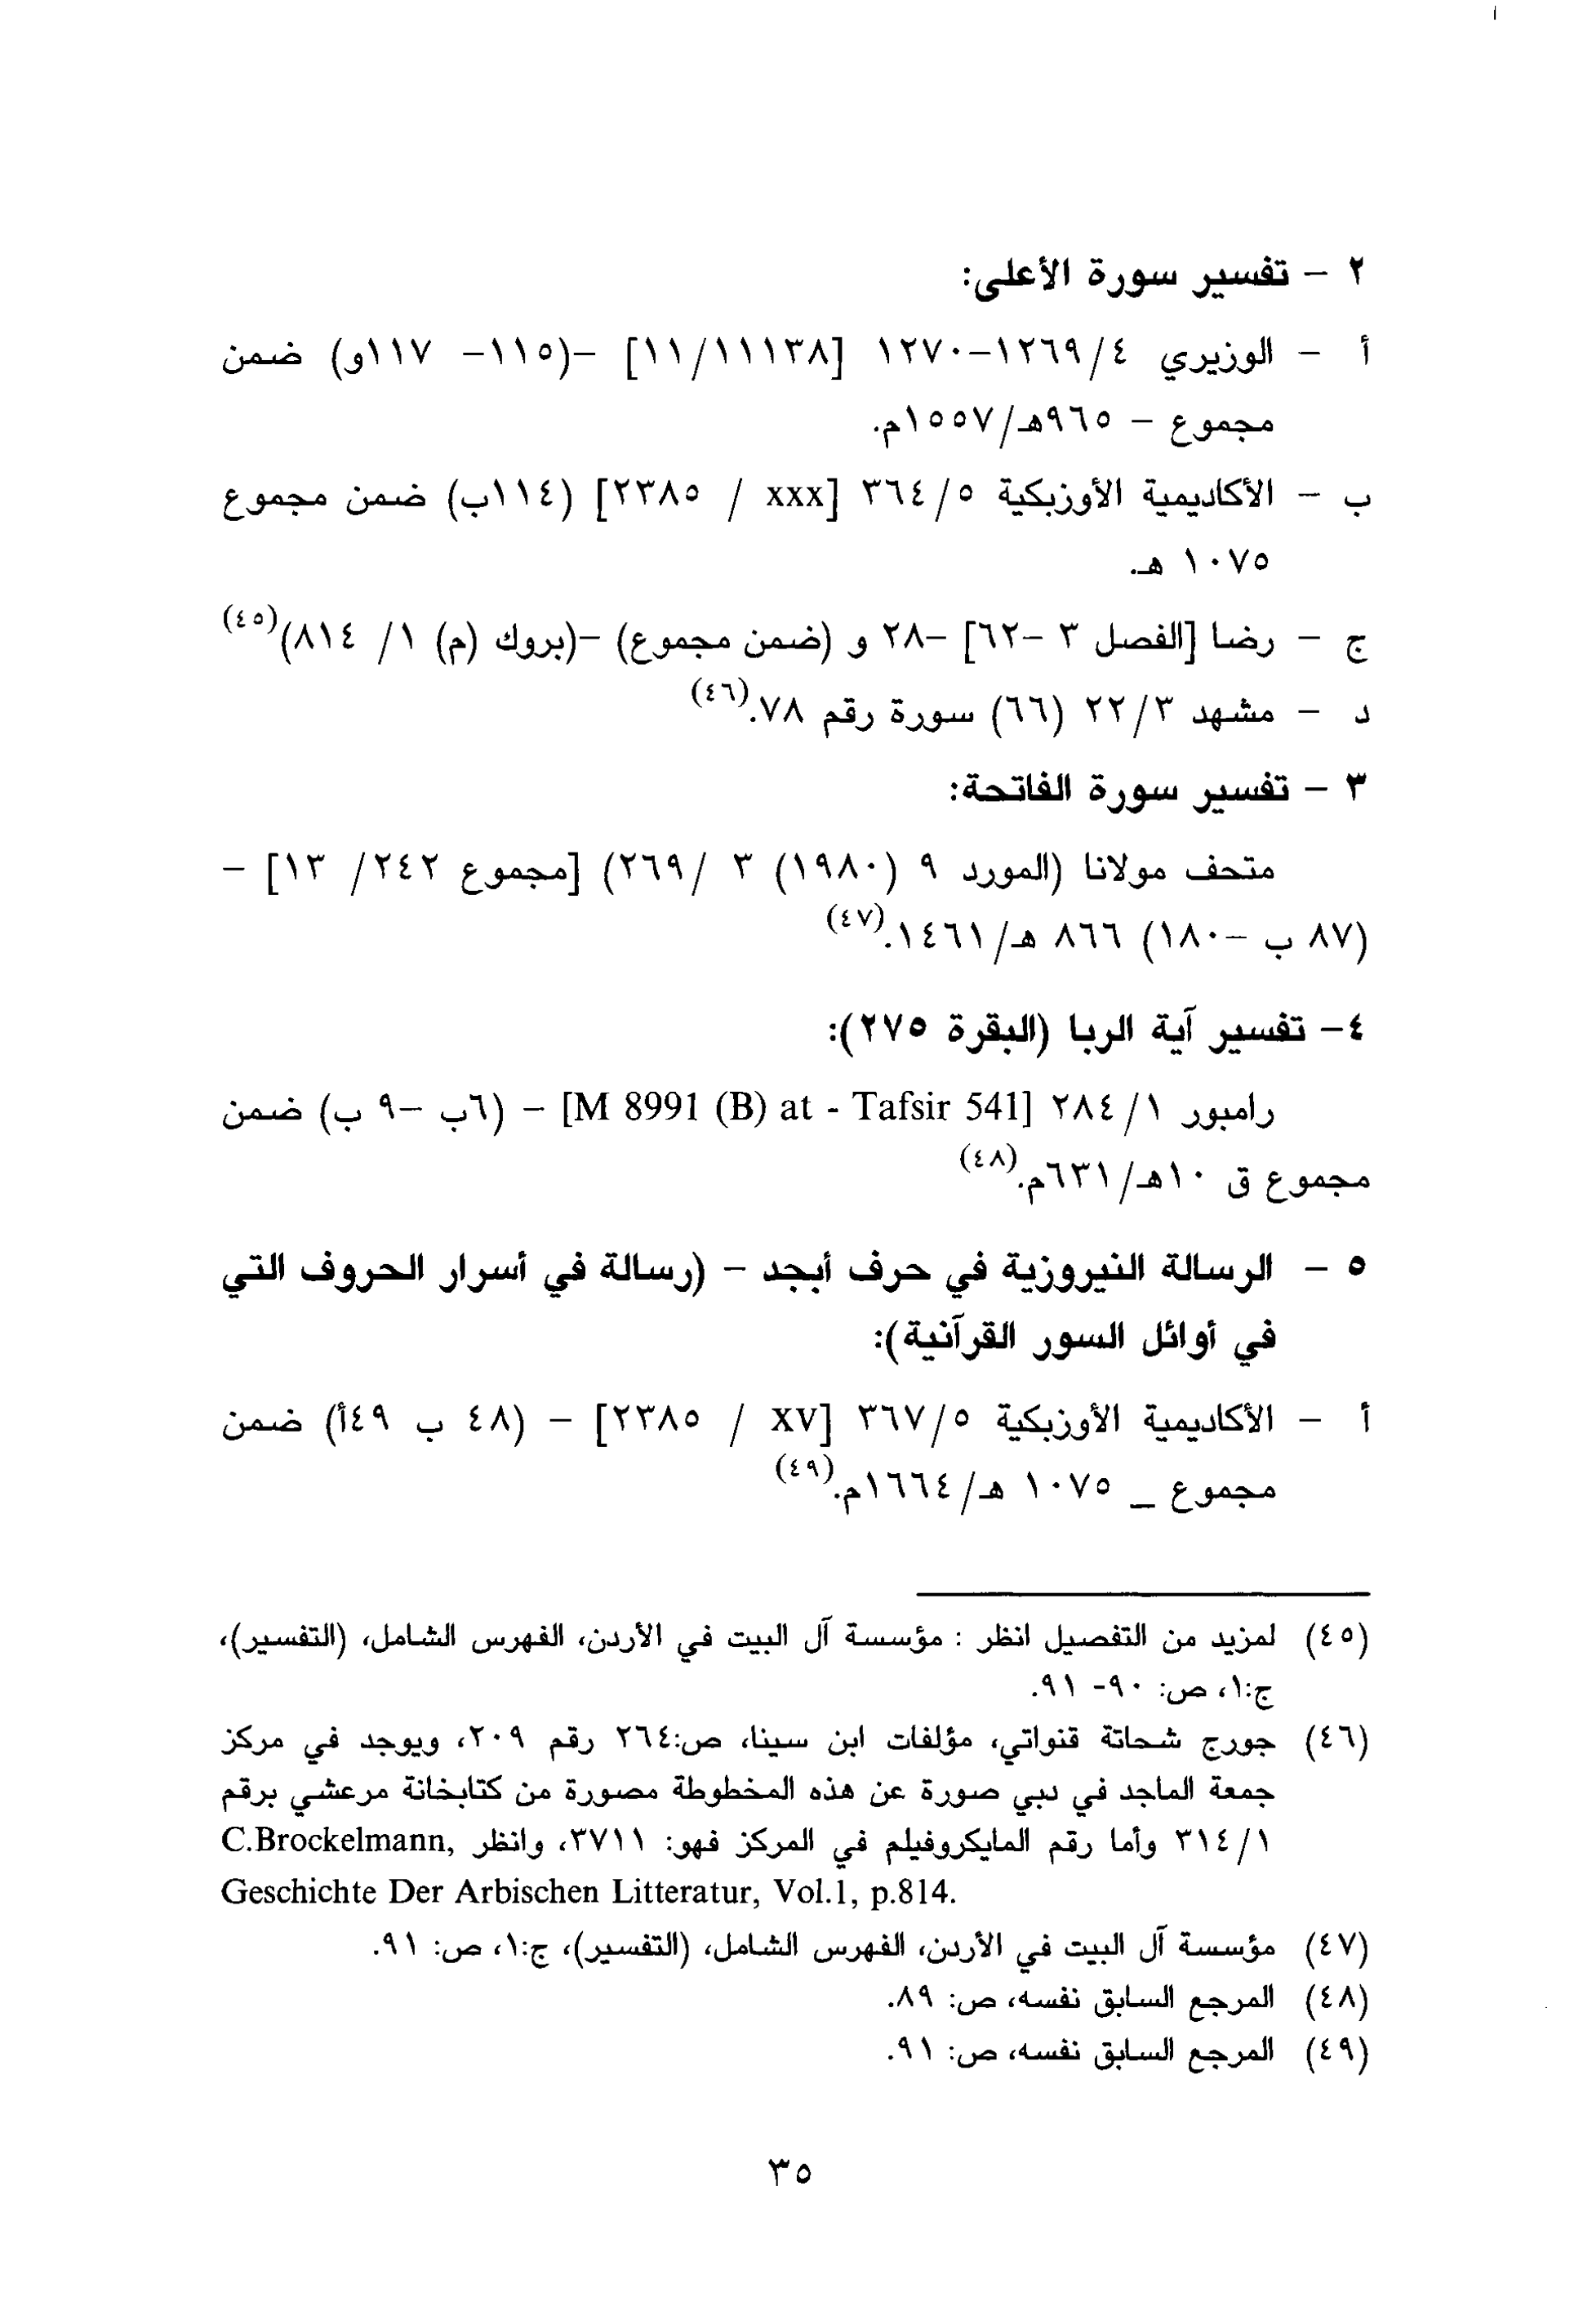 ٢ – تفسير سورة الأعلى:
أ – الوزيري ١٢٦٩/٤–١٢٧٠ [١١/١١١٣٨] –(١١٥– ١١٧و) ضمن
مجموع – ٩٦٥هـ/١٥٥٧م.
ب – الأكاديمية الأوزبكية ٣٦٤/٥ [xxx / ٢٣٨٥] (١١٤ب) ضمن مجموع
١٠٧٥ هـ.
ج – رضا [الفصل ٣ –٦٢] –٢٨ و (ضمن مجموع) –(بروك (م) ١/ ٨١٤)(٤٥)
د – مشهد ٢٢/٣ (٦٦) سورة رقم ٧٨.(٤٦)
٣ – تفسير سورة الفاتحة:
متحف مولانا (المورد ٩ (١٩٨٠) ٣ /٢٦٩) [مجموع ٢٤٢/ ١٣] –
(٨٧ ب –١٨٠) ٨٦٦ هـ/١٤٦١.(٤٧)
٤– تفسير آية الربا (البقرة ٢٧٥):
رامبور ٢٨٤/١ [M 8991 (B) at - Tafsir 541] – (٦ب –٩ ب) ضمن
مجموع ق ١٠هـ/٦٣١م.(٤٨)
٥ – الرسالة النيروزية في حرف أبجد – (رسالة في أسرار الحروف التي
في أوائل السور القرآنية):
أ – الأكاديمية الأوزبكية ٣٦٧/٥ [XV / ٢٣٨٥] – (٤٨ ب ٤٩أ) ضمن
مجموع _ ١٠٧٥ هـ/١٦٦٤م.(٤٩)
(٤٥) لمزيد من التفصيل انظر : مؤسسة آل البيت في الأردن، الفهرس الشامل، (التفسير)،
ج:١، ص: ٩٠- ٩١.
(٤٦) جورج شحاتة قنواتي، مؤلفات ابن سينا، ص:٢٦٤ رقم ٢٠٩، ويوجد في مركز
جمعة الماجد في دبي صورة عن هذه المخطوطة مصورة من كتابخانة مرعشي برقم
٣١٤/١ وأما رقم المايكروفيلم في المركز فهو: ٣٧١١، وانظر C.Brockelmann,
Geschichte Der Arbischen Litteratur, Vol.1, p.814.
(٤٧) مؤسسة آل البيت في الأردن، الفهرس الشامل، (التفسير)، ج:١، ص: ٩١.
(٤٨) المرجع السابق نفسه، ص: ٨٩.
(٤٩) المرجع السابق نفسه، ص: ٩١.
٣٥